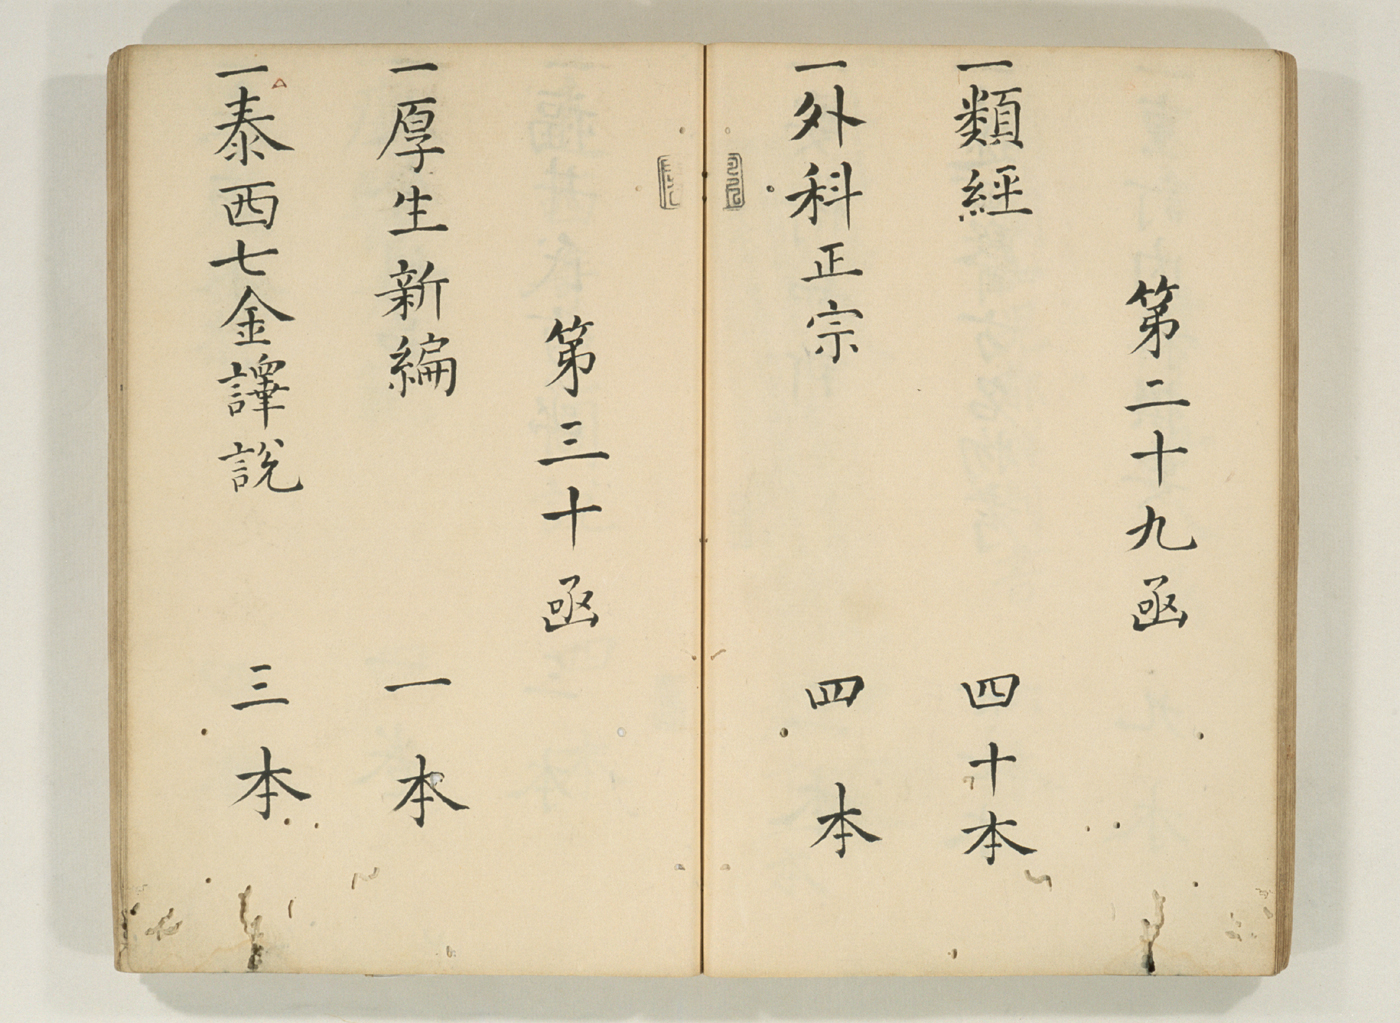 第二十九函
一類經 四十本
一外科正宗 四本
第三十函
一厚生新編 一本
一泰西七金譯說 三本